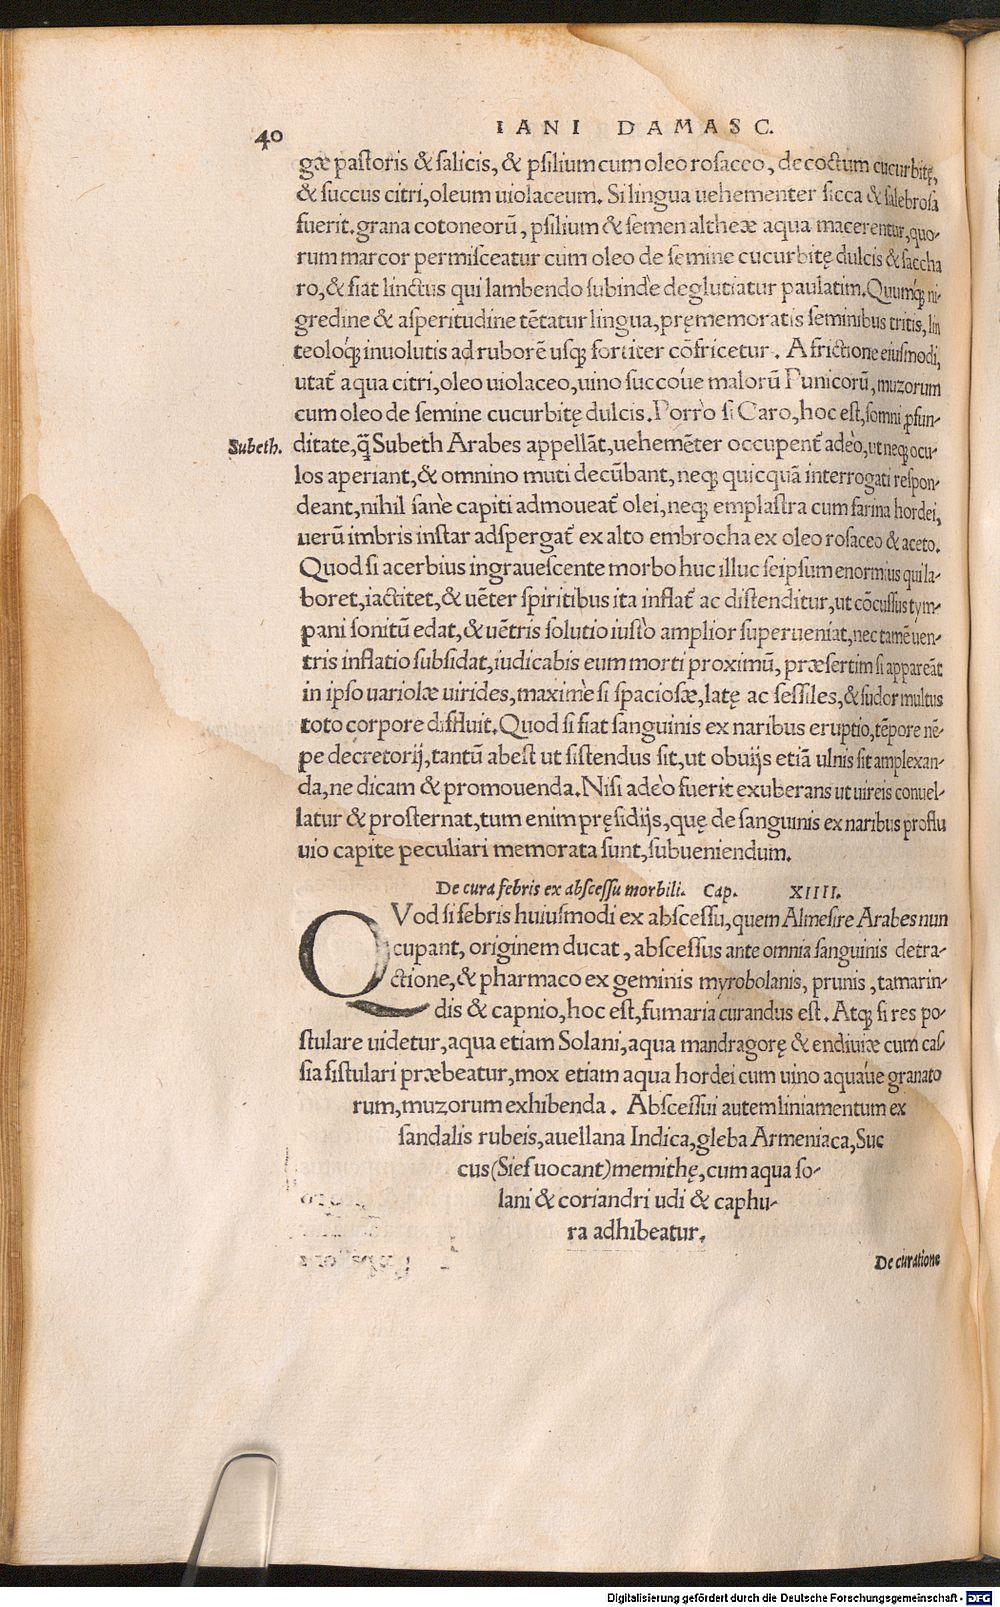 40
IANI DAMASC.
gæ pastoris & salicis, & psilium cum oleo rosaceo, decoctum cucurbitę,
& succus citri, oleum uiolaceum. Si lingua uehementer sicca & salebrosa
fuerit. grana cotoneorũ, psilium & semen altheæ aqua macerentur, quo-
rum marcor permisceatur cum oleo de semine cucurbitę dulcis & saccha
ro, & fiat linctus qui lambendo subindè deglutiatur paulatim. Quumq́; ni-
gredine & asperitudine tẽtatur lingua, pręmemoratis seminibus tritis, lin
teoloq́; inuolutis ad ruborẽ usq; fortiter cõfricetur. A frictione eiusmodi,
utat̃ aqua citri, oleo uiolaceo, uino succoúe malorũ Punicorũ, muzorum
cum oleo de semine cucurbitę dulcis. Porrò si Caro, hoc est, somni ꝓfun-
Subeth.
ditate, q̃ Subeth Arabes appellãt, uehemẽter occupent̃ adeò, ut neq; ocu-
los aperiant, & omnino muti decũbant, neq; quicquã interrogati respon-
deant, nihil sanè capiti admoueat̃ olei, neq; emplastra cum farina hordei,
uerũ imbris instar adspergat̃ ex alto embrocha ex oleo rosaceo & aceto.
Quod si acerbius ingrauescente morbo huc illuc seipsum enormius qui la-
boret, iactitet, & uẽter spiritibus ita inflat̃ ac distenditur, ut cõcussus tym-
pani sonitũ edat, & uẽtris solutio iustò amplior superueniat, nec tamẽ uen-
tris inflatio subsidat, iudicabis eum morti proximũ, præsertim si appareãt
in ipso uariolæ uirides, maximè si spaciosæ, latę ac sessiles, & sudor multus
toto corpore diffluit. Quod si fiat sanguinis ex naribus eruptio, tẽpore nẽ-
pe decretorij, tantũ abest ut sistendus sit, ut obuijs etiã ulnis sit amplexan-
da, ne dicam & promouenda. Nisi adeò fuerit exuberans ut uireis conuel-
latur & prosternat, tum enim pręsidijs, quę de sanguinis ex naribus proflu
uio capite peculiari memorata sunt, subueniendum.
De cura febris ex abscessu morbili. Cap. XIIII.
QVod si febris huiusmodi ex abscessu, quem Almesire Arabes nun
cupant, originem ducat, abscessus ante omnia sanguinis detra-
ctione, & pharmaco ex geminis myrobolanis, prunis, tamarin-
dis & capnio, hoc est, fumaria curandus est. Atq; si res po-
stulare uidetur, aqua etiam Solani, aqua mandragorę & endiuiæ cum cas-
sia fistulari præbeatur, mox etiam aqua hordei cum uino aquáue granato
rum, muzorum exhibenda. Abscessui autem liniamentum ex
sandalis rubeis, auellana Indica, gleba Armeniaca, Suc
cus (Sief uocant) memithę, cum aqua so-
lani & coriandri udi & caphu-
ra adhibeatur.
De curatione
Digitalisierung gefördert durch die Deutsche Forschungsgemeinschaft - DFG